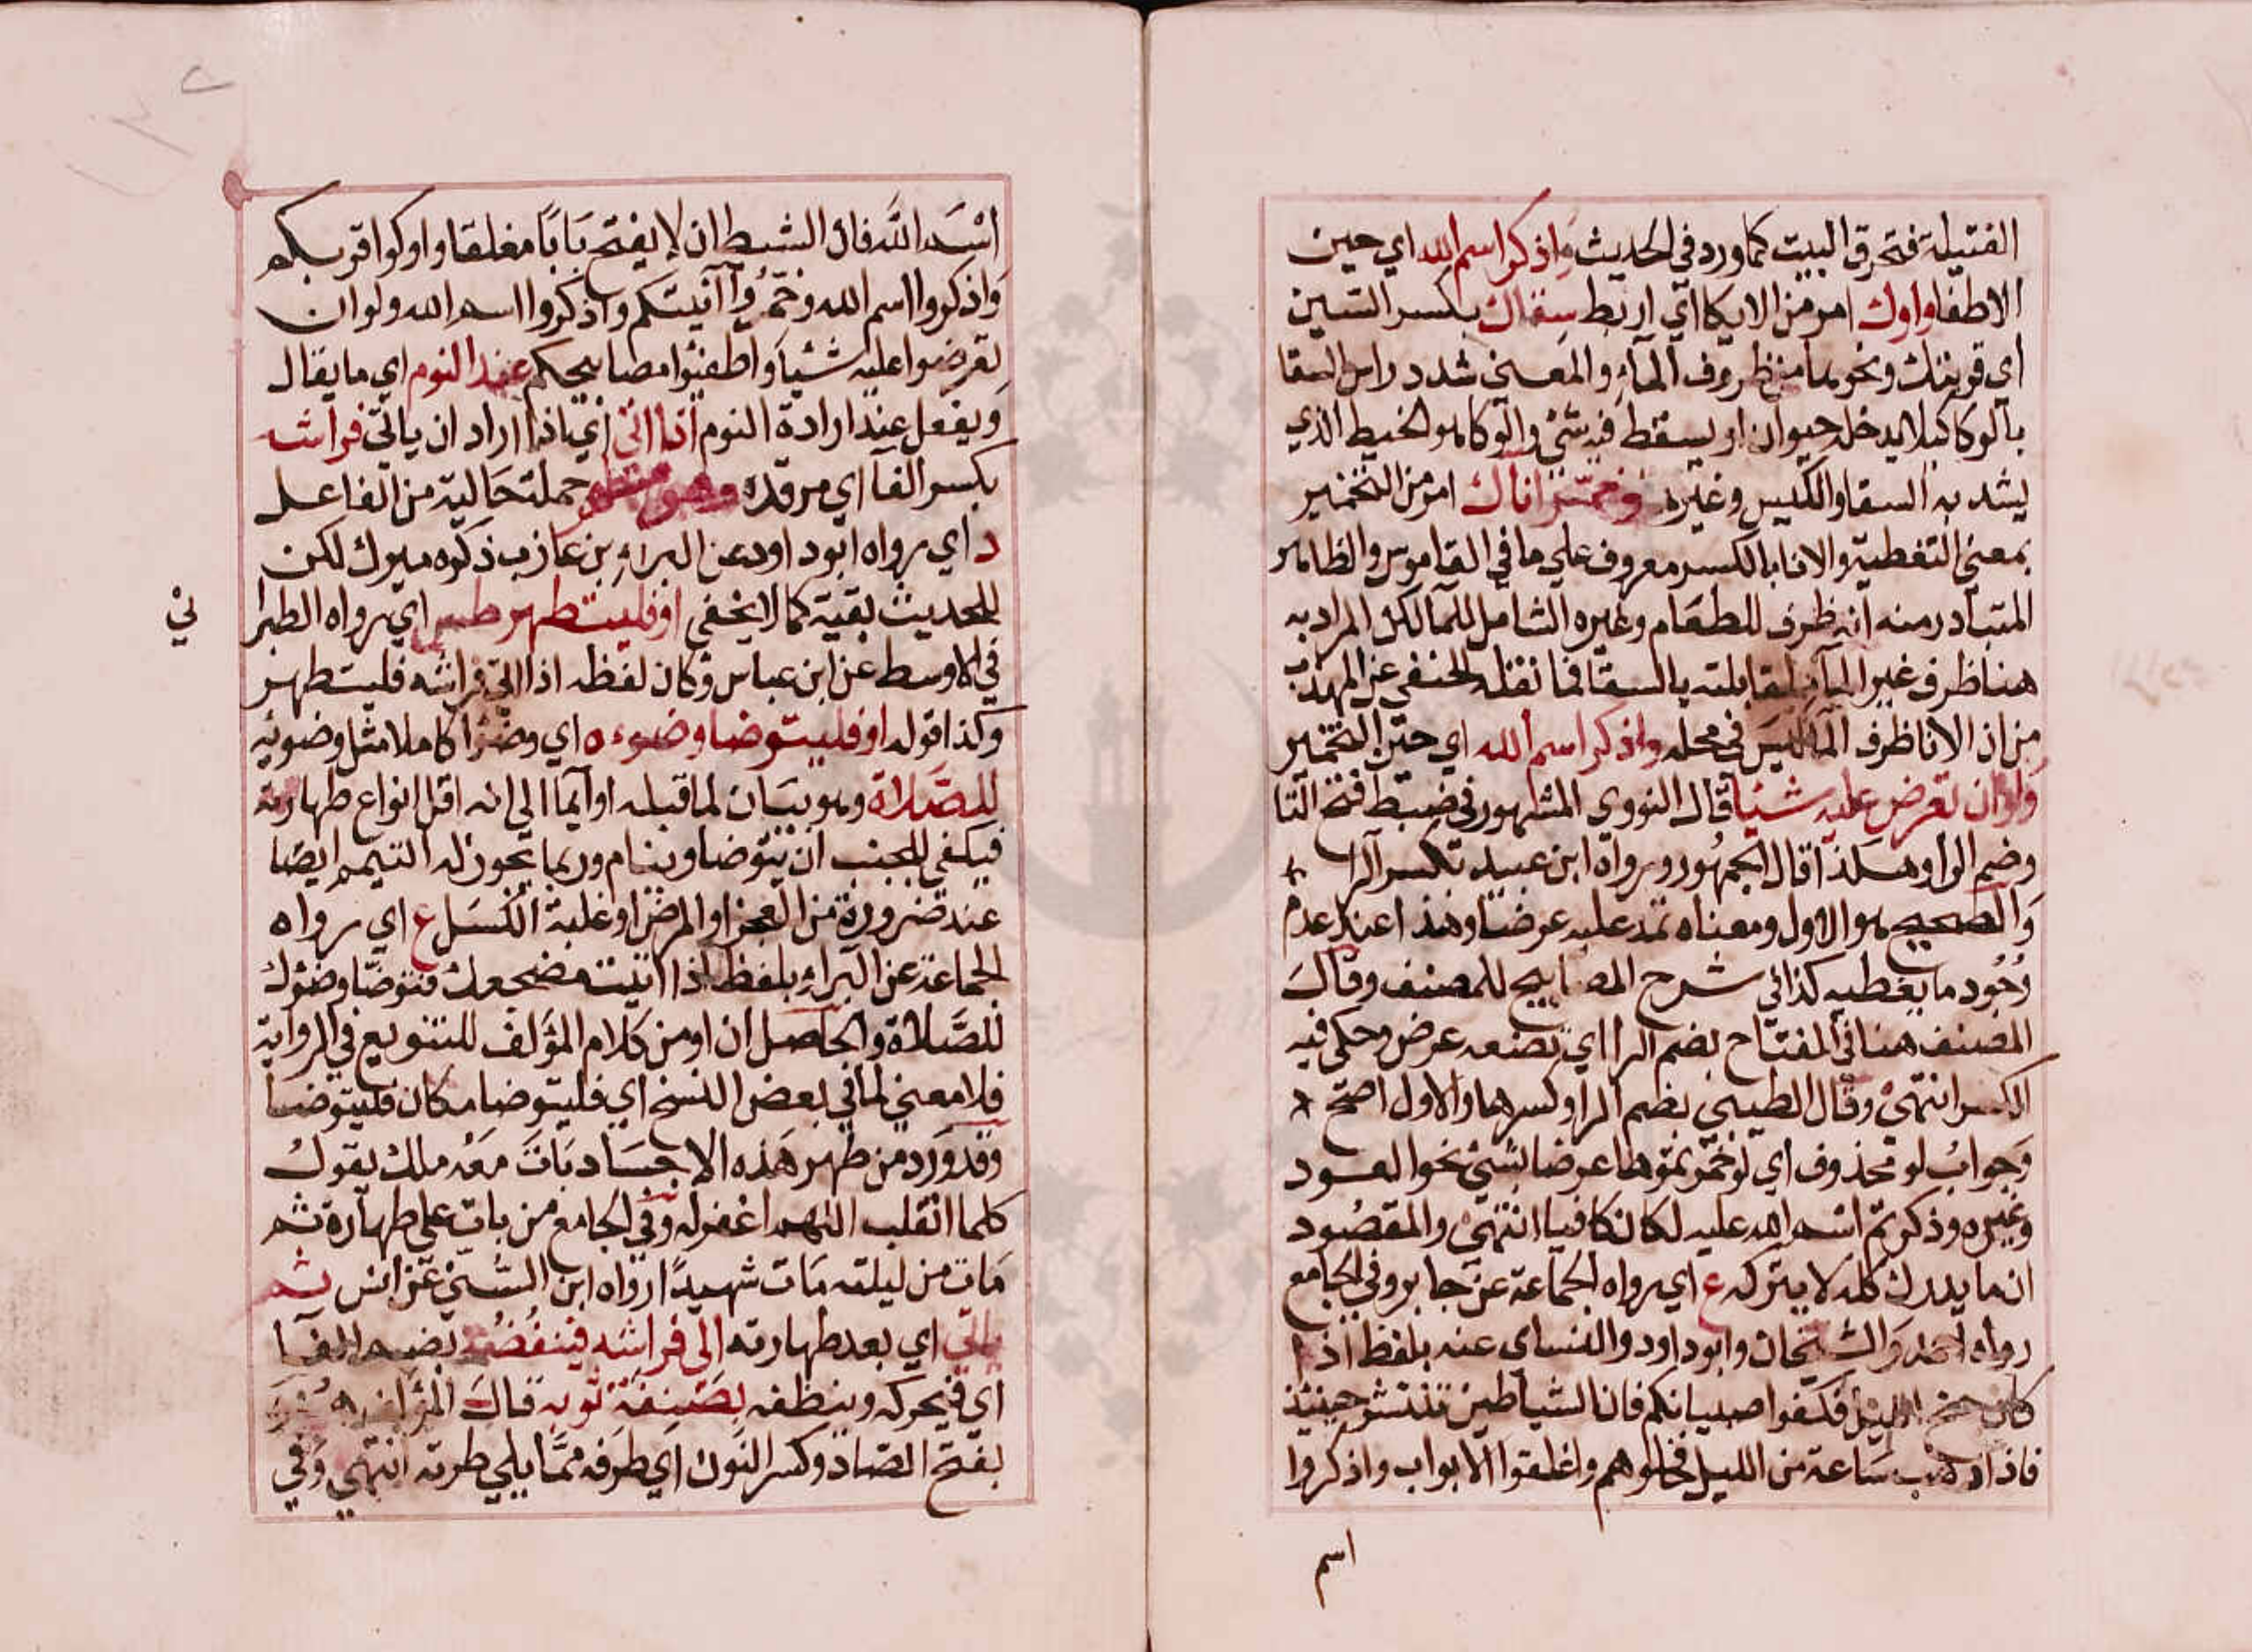 الفتيلة فتحرق البيت كما ورد في الحديث واذكر اسم الله اي حين
الاطفا واوك امر من الايكا اي اربط سقاك بكسر السين
اي قربتك ونحوها من ظروف الماء والمعني شدد راس السقا
بالوكا كيلا يدخله حيوان او يسقط فيه شئ والوكا هو الخيط الذي
يشد به السقا والكيس وغيره وخمّر اناك امر من التخمير
بمعني التغطية والانا بالكسر معروف علي ما في القاموس والظاهر
المتبادر منه انه ظرف للطعام وغيره الشامل للما لكن المراد به
هنا ظرف غير الماء لمقابلته بالسقا فما نقله الحنفي عن المهذب
من ان الانا ظرف الما ليس في محله واذكر اسم الله اي حين التخمير
ولو ان تعرض عليه شيئا قال النووي المشهور في ضبط فتح التا
وضم الرا وهكذا قال الجمهور ورواه ابن عبيد بكسر الرا
والصحيح هو الاول ومعناه تمد عليه عرضا وهذا عند عدم
وُجُود ما يغطيه كذا في شرح المصابيح للمصنف وقال
المصنف هنا في المفتاح بضم الرا اي تضعه عرض وحكي فيه
الكسر انتهي وقال الطيبي بضم الرا وكسرها والاول اصح
وجوابُ لو محذوف اي لو خمرتموها عرضا بشئ نحو العود
وغيره وذكرتم اسم الله عليه لكان كافيا انتهي والمقصُود
ان ما يدرك كله لا يترك كله ع اي رواه الجماعة عن جابر وفي الجامع
رواه احمد والشيخان وابو داود والنساى عنه بلفظ اذا
كان جنح الليل فكفوا صبيانكم فان الشياطين تنتشر حينئذ
فاذا ذهب ساعة من الليل فخلوهم واغلقوا الابواب واذكروا
اسم
اسم الله فان الشيطان لا يفتح بَابًا مغلقا واوكوا قربكم
واذكروا اسم الله وخمّروا آنيتكم واذكروا اسم الله ولو ان
تعرضوا عليه شيئا واطفئوا مصابيحكم عند النوم اي ما يقال
ويفعل عند ارادة النوم اذا اتى اي اذا اراد ان ياتي فراشه
بكسر الفا اي مرقده وهو متطهر جملة حالية من الفاعل
د اي رواه ابو داود عن البراء بن عازب ذكره ميرك لكن
للحديث بقية كما لا يخفي او فليتطهر طس اي رواه الطبرا
ني
في الاوسط عن ابن عباس وكان لفظه اذا اتي فراشه فليتطهر
وكذا قوله او فليتوضا وضوءه اي وضؤا كاملا مثل وضوئه
للصّلاة وهو بيَان لما قبله او ايما الي انه اقل انواع طهارته
فيكفي للجنب ان يتوضا وينام وربما يجوز له التيمم ايضا
عند ضرورة من العجز او المرض او غلبة الكسَل ع اي رواه
الجماعة عن البراء بلفظ اذا اتيت مضجعك فتوضا وضؤك
للصَّلاة والحاصل ان او من كلام المؤلف للتنويع في الرواية
فلا معني لما في بعض النسخ اي فليتوضا مكان فليتوضا
وقد وَرَد من طهر هَذه الاجسَاد بَاتَ مَعَه ملك يقول
كلما انقلب اللهم اغفر له وفي الجامع من بات علي طهارة ثم
مات من ليلته مَات شهيدًا رواه ابن السّني عن انس ثم
ياتي اي بعد طهارته الى فراشه فينفُضُه بضم الفا
اي فيحركه وينظفه بصَنِفَة ثوبه قال المؤلف هو
بفتح الصاد وكسر النون اي طرَفه ممّا يلي طرته انتهي وفي